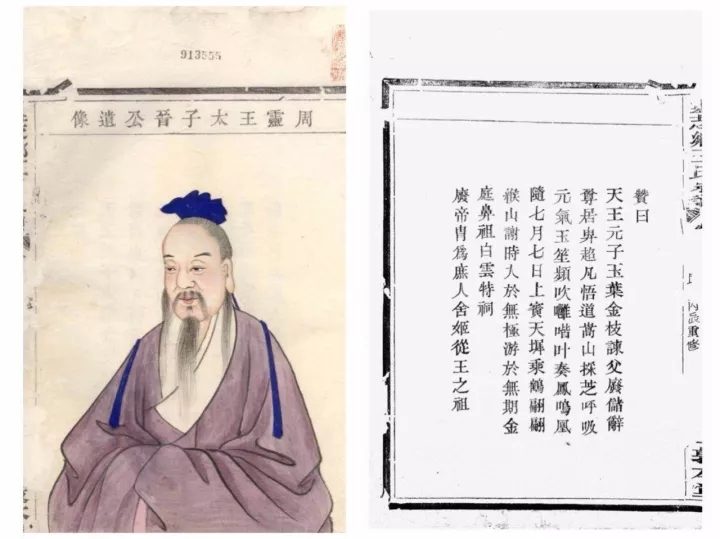 913555
周靈王太子晉公遺像
贊曰
天王元子玉葉金枝諫父廢儲辭
尊居卑超凡悟道嵩山採芝呼吸
元氣玉笙頻吹雝喈叶奏鳳鳴凰、
隨七月七日上賓天墀乘鶴翩翩
緱山謝時人於無極游於無期金
庭鼻祖白雲特祠
廢帝冑爲庶人舍姬從王之祖
丙辰重修